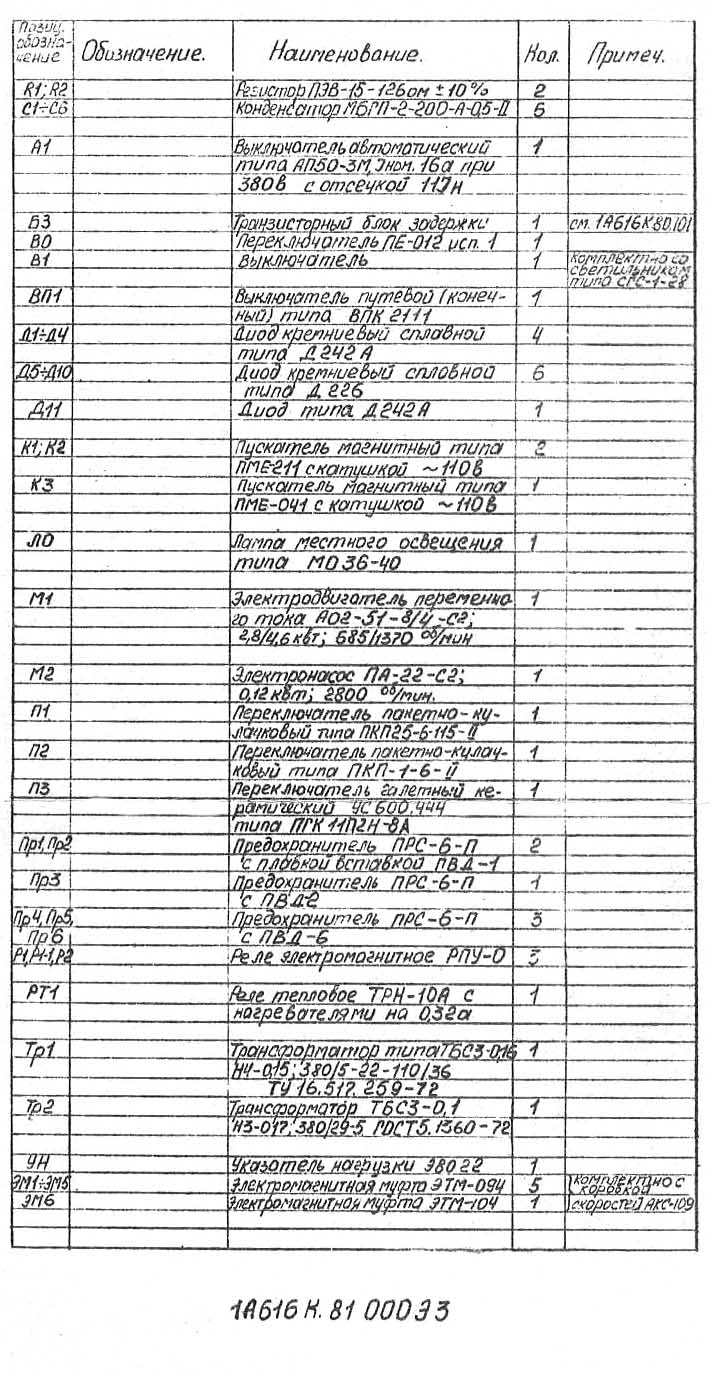 Позиц. обозна- чение Обозначение. Наименование. Кол. Примеч.
R1; R2 Резистор ПЭВ-15-126ом ±10% 2
С1÷С6 Конденсатор МБГП-2-200-А-0,5-II 6
А1 Выключатель автоматический 1
типа АП50-3М, Jном. 16а при
380в с отсечкой 11Jн
БЗ Транзисторный блок задержки 1 см. 1А616К.80.101
ВО Переключатель ПЕ-012 исп. 1 1
В1 Выключатель 1 комплектно со
светильником
типа СГС-1-2В
ВП1 Выключатель путевой (конеч- 1
ный) типа ВПК 2111
Д1÷Д4 Диод кремниевый сплавной 4
типа Д242А
Д5÷Д10 Диод кремниевый сплавной 6
типа Д.226
Д11 Диод типа Д242А 1
К1; К2 Пускатель магнитный типа 2
ПМЕ-211 с катушкой ~110в
К3 Пускатель магнитный типа 1
ПМЕ-041 с катушкой ~110в
ЛО Лампа местного освещения 1
типа МО36-40
М1 Электродвигатель переменно- 1
го тока АО2-51-8/4-С2;
2,8/4,6 квт; 685/1370 об/мин
М2 Электронасос ПА-22-С2; 1
0,12 квт; 2800 об/мин.
П1 Переключатель пакетно-ку- 1
лачковый типа ПКП25-6-115-II
П2 Переключатель пакетно-кулач- 1
ковый типа ПКП-1-6-II
П3 Переключатель галетный ке- 1
рамический УС600.444
типа ПГК 11П2Н-8А
Пр1, Пр2 Предохранитель ПРС-6-П 2
с плавкой вставкой ПВД-1
Пр3 Предохранитель ПРС-6-П 1
с ПВД-2
Пр4, Пр5, Предохранитель ПРС-6-П 3
Пр6 с ПВД-6
Р1,Р1-1,Р2 Реле электромагнитное РПУ-0 3
РТ1 Реле тепловое ТРН-10А с 1
нагревателями на 0,32а
Тр1 Трансформатор типа ТБС3-0,16 1
Н4-015; 380/5-22-110/36
ТУ 16.517. 259-72
Тр2 Трансформатор ТБС3-0,1 1
Н3-017; 380/29-5 ГОСТ5.1360-72
УН Указатель нагрузки Э8022 1
ЭМ1÷ЭМ5 Электромагнитная муфта ЭТМ-094 5 комплектно с
коробкой
ЭМ6 Электромагнитная муфта ЭТМ-104 1 скоростей АКС-109
1А616К. 81 000Э3